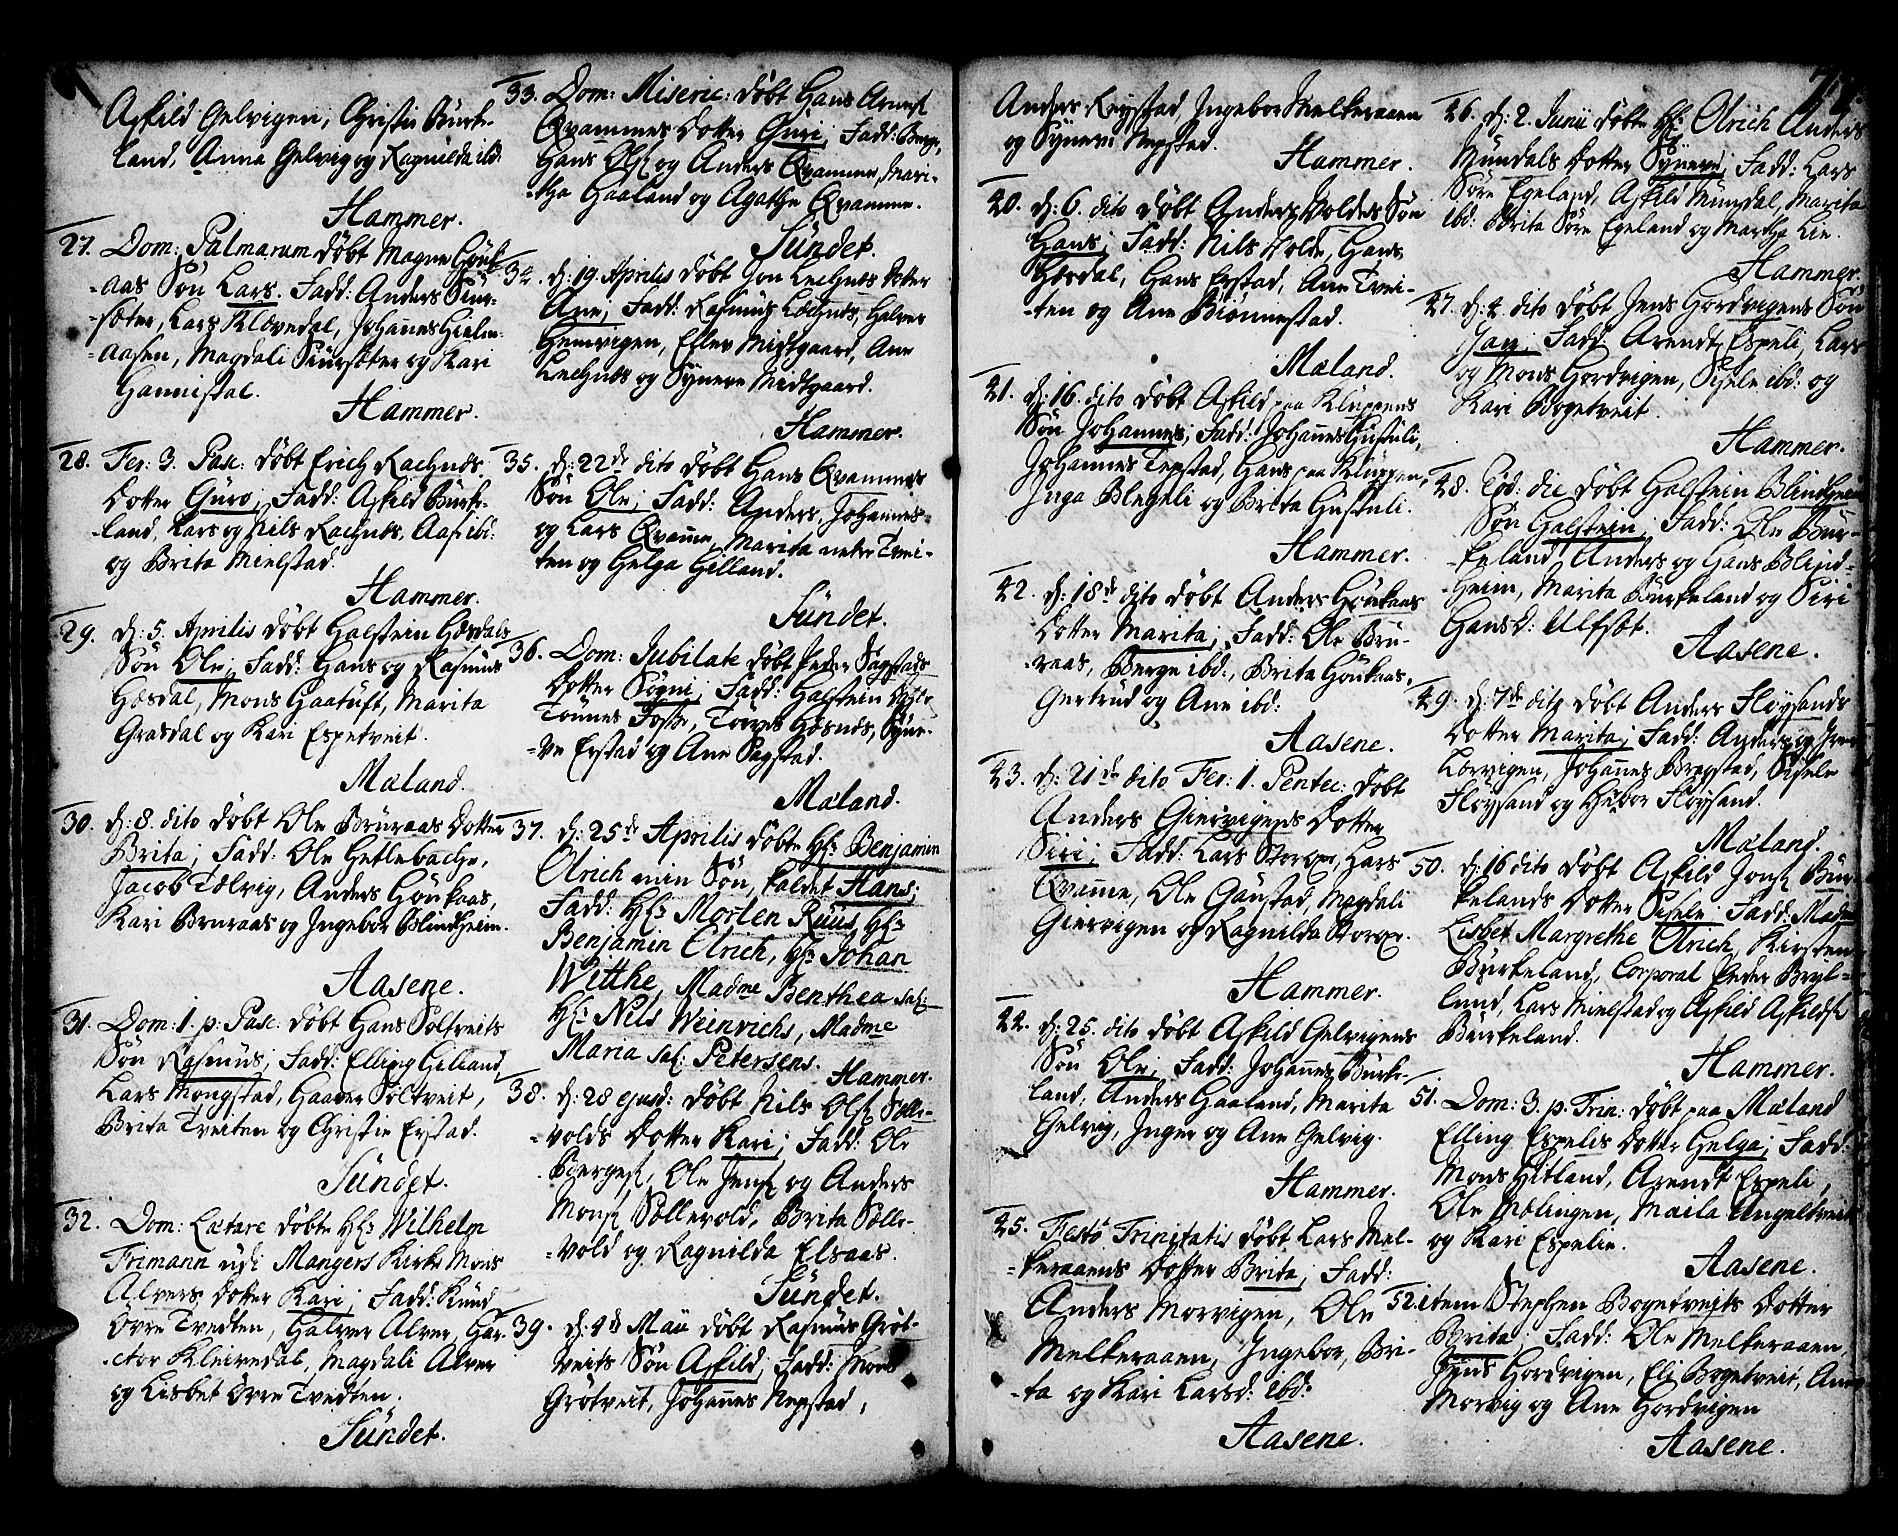 Askild Gelvigen, Christi Bürke-
land, Anna Gelvig og Ragnilda ibd:
Hammer.
27. Dom: Palmarum døbt Magne Höuk-
-aas Søn Lars. Fadd: Anders Siür-
-sæter, Lars Klævedal, Johannes Hielm-
-aasen, Magdali Siürsæter og Kari
Hannisdal.
Hammer.
28. Fer: 3. Pasc: døbt Erich Rachnds
Dotter Guro; Fadd: Askild Bürke-
-land, Lars og Nils Rachnds, Aase ibd:
og Brita Mielstad.
Hammer.
29. d: 5. Aprilis døbt Halstein Hæsdals
Søn Ole; Fadd: Hans og Rasmus
Hæsdal, Mons Gaatuft, Marita
Grasdal og Kari Espetveit.
Mæland.
30. d: 8. dito døbt Ole Brüraas Dotter
Brita; Fadd: Ole Hetlebache,
Jacob Tælvig, Anders Höukaas,
Kari Bruraas og Ingebor Blindheim.
Aasene.
31. Dom: 1. p: Pasc: døbt Hans Soltveits
Søn Rasmus; Fadd: Elling Gilland,
Lars Mongstad, Haaver Söltveit,
Brita Tveiten og Christie Erstad.
Sündet.
32. Dom: Lætare døbte Hr: Wilhelm
Frimann udi Mangers Kirke Mons
Alvers Dotter Kari; Fadd: Knud
Øvre Tvedten, Halver Alver, Hac-
-ctor Kleivedal, Magdali Alver
og Lisbet Øvre Tvedten.
Sündet.
33. Dom: Miseric: døbt Hans Arnes:
Qvammes Dotter Guri; Fadd: Berge,
Hans Ols: og Anders Qvamme, Mari-
-tha Gaaland og Agathe Qvamme.
Sündet.
34. d: 19. Aprilis døbt Jon Lechnds Dotter
Ane; Fadd: Rasmus Lechnds, Halver
Hemvigen, Ellev Midtgaard, Ane
Lechnds og Syneve Midtgaard.
Hammer.
35. d: 22de dito døbt Hans Qvammes
Søn Ole; Fadd: Anders, Johannes
og Lars Qvamme, Marita nedre Tvei-
ten og Helga Gilland.
Sündet.
36. Dom: Jubilate døbt Peder Sagstads
Dotter Søgni; Fadd: Halstein
Tönnes Fosse, Torres Hosnds, Syne-
-ve Erstad og Ane Sagstad.
Mæland.
37. d: 25de Aprilis døbte Hr: Benjamin
Olrich min Søn, kaldet Hans;
Fadd: Hr: Morten Ruus, Hr:
Benjamin Olrich, Hr: Johan
Witthe, Madme Benthea sal:
Hr: Nils Weinrichs, Madme
Maria sal: Petersens.
Hammer.
38. d: 28 ejusd: døbt Nils Ols: Sölle-
-volds Dotter Kari; Fadd: Ole
Berges:, Ole Jens: og Anders
Mons: Söllevold, Brita Sölle-
-vold og Ragnilda Elsaas.
Sündet.
39. d: 4de Maii døbt Rasmus Gröt-
veits Søn Askild; Fadd: Mons
Grötveit, Johannes Nepstad,
Anders Röystad, Ingebor Melkeraaen
og Synevi Nepstad.
Hammer.
40. d: 6. dito døbt Anders Volds Søn
Hans; Fadd: Nils Volde, Hans
Hæsdal, Hans Erstad, Ane Tvei-
-ten og Ane Biönnestad.
Mæland.
41. d: 16. dito døbt Askild paa Klüppens
Søn Johannes; Fadd: Johannes Husfuli,
Johannes Tepstad, Hans paa Klüppen,
Inga Blegeli og Brita Husfuli.
Hammer.
42. d: 18d dito døbt Anders Höukaas
Dotter Marita; Fadd: Ole Brü-
-raas, Berge ibd:, Brita Höukaas,
Gertrud og Ane ibd:
Aasene.
43. d: 21de dito Fer: 1. Pentec: døbt
Anders Giervigens Dotter
Siri; Fadd: Lars Storoxe, Lars
Qvamme, Ole Gaustad, Magdali
Giervigen og Ragnilda Storoxe.
Hammer.
44. d: 25. dito døbt Askild Gelvigens
Søn Ole; Fadd: Johannes Bürke-
land, Anders Gaaland, Marita
Gelvig, Inger og Ane Gelvig.
Hammer.
45. Festo Trinitatis døbt Lars Mel-
-keraaens Dotter Brita; Fadd:
Anders Morvigen, Ole
Melkeraaen, Ingebor, Bri-
-ta og Kari Larsd: ibd:
Aasene.
46. d: 2. Junii døbte Hr: Olrich Anders
Mundals Dotter Syneve; Fadd: Lars
Søre Egeland, Askild Mundal, Marita
ibd: Brita Søre Egeland og Marthe Lie.
Hammer.
47. d: 4. dito døbt Jens Hordvigens Søn
Jan; Fadd: Arendt Espeli, Lars
og Mons Hordvigen, Sisele ibd: og
Kari Bogetveit.
Hammer.
48. Eod: die døbt Halstein Blindheims
Søn Halstein; Fadd: Ole Bür-
-keland, Anders og Hans Blind-
-heim, Marita Bürkeland og Siri
Hansd: Ulfset.
Aasene.
49. d: 7de dito døbt Anders Flöysands
Dotter Marita; Fadd: Anders og Iver
Lorvigen, Johannes Bragstad, Sisele
Flöysand og Hübor Flöysand.
Mæland.
50. d: 16 dito døbt Askild Jons: Bür-
kelands Dotter Sisele; Fadd: Madme
Lisbet Margrethe Olrich, Kirsten
Bürkeland, Corporal Peder Bryl-
lund, Lars Mielstad og Askild Askilds:
Bürkeland.
Hammer.
51. Dom: 3. p: Trin: døbt paa Mæland
Elling Espelis Dotter Helga; Fadd:
Mons Hitland, Arendt Espeli,
Ole Mælingen, Maila Angeltveit
og Kari Espelie.
Aasene.
52. item Stephen Bogetveits Dotter
Brita; Fadd: Ole Melkeraaen,
Jens Hordvigen, Eli Bogetveit, Ane
Morvig og Ane Hordvigen
Aasene.